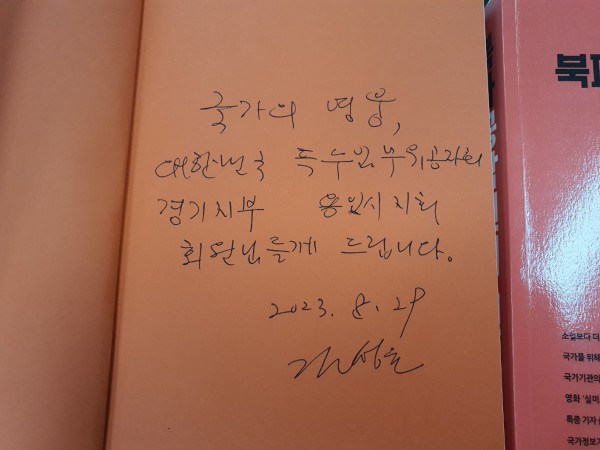 국가의 영웅,
대한민국 특수임무유공자회
경기지부 용인시지회
회원님들께 드립니다.
2023. 8. 29
북파
소설보다 더
국가를 위해
국가기관의
영화 '실미
특종 기자
국가정보